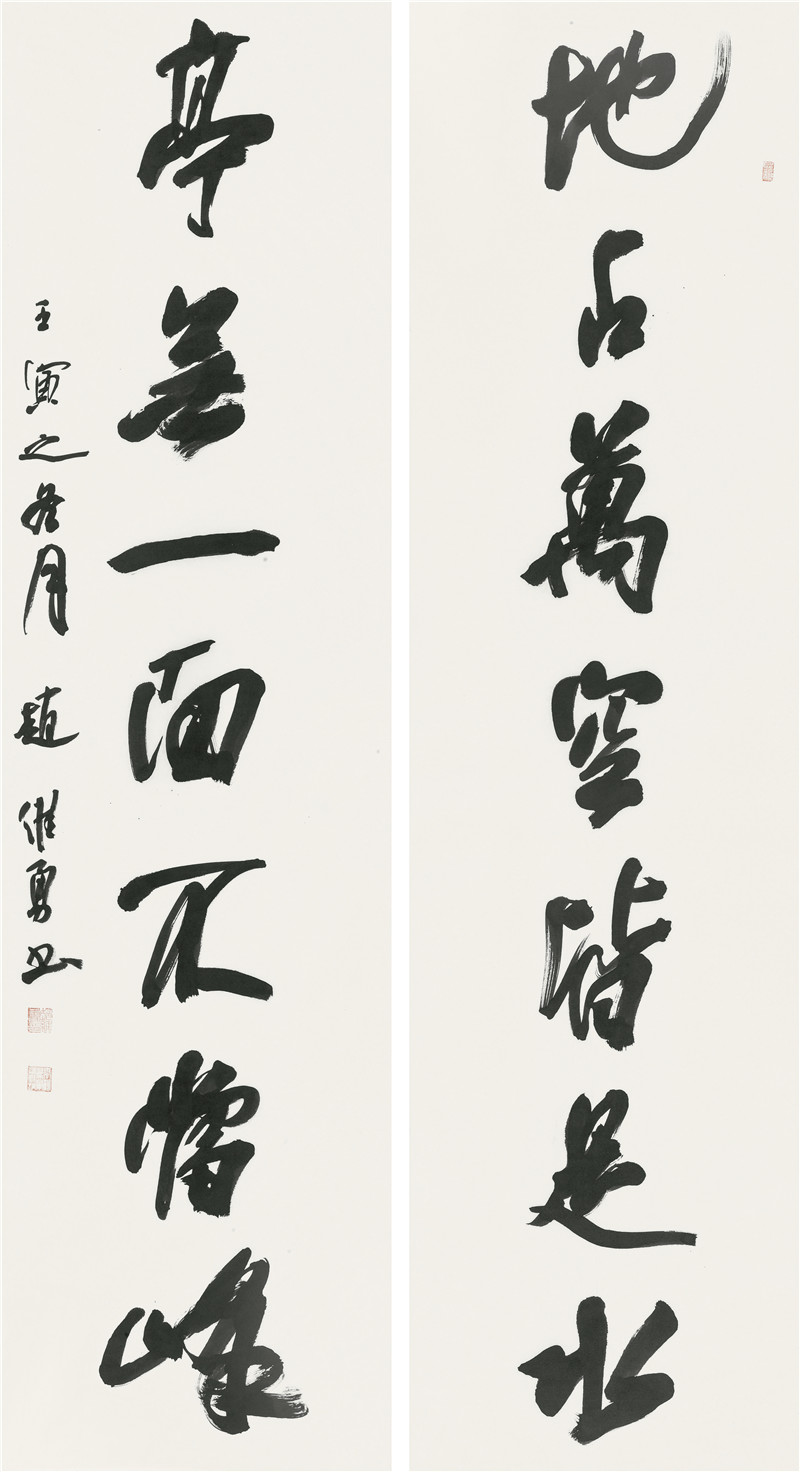 地占萬空皆是水
亭無一面不峰
壬寅之冬月 趙維勇書